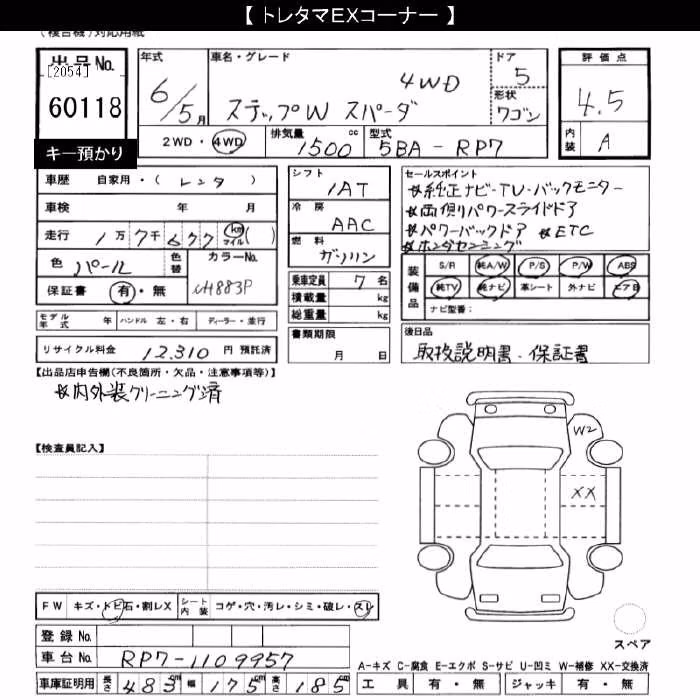 【 トレタマEXコーナー 】
(複合機)対応用紙
出品No.
[2054]
60118
キー預かり
年式
6/5月
車名・グレード
4WD
ステップW スパーダ
ドア
5
形状
ワゴン
評価点
4.5
内装
A
2WD・4WD
排気量
1500 cc
型式
5BA-RP7
車歴 自家用・( レンタ )
車検 年 月
走行 1万7千677 km マイル ( )
色 パール
色替
カラーNo.
NH883P
保証書 有・無
シフト
IAT
冷房
AAC
燃料
ガソリン
乗車定員 7名
積載量 kg
総重量 kg
セールスポイント
☆純正ナビ-TV-バックモニター
☆両側りパワースライドドア
☆パワーバックドア ☆ETC
☆ホンダセンシング
装備品
S/R 純A/W P/S P/W ABS
純TV 純ナビ 革シート 外ナビ エアB
ナビ型番:
モデル年式 年 ハンドル 左・右 ディーラー・並行
書類期限
月 日
後日品
取扱説明書・保証書
リサイクル料金 12,310 円 預託済
【出品店申告欄(不良箇所・欠品・注意事項等)】
☆内外装クリーニング済
【検査員記入】
W2
XX
FW キズ・トビ石・割レX
シート内装 コゲ・穴・汚レ・シミ・破レ・スレ
スペア
登録No.
車台No. RP7-1109957
A-キズ C-腐食 E-エクボ S-サビ U-凹ミ W-補修 XX-交換済
車庫証明用 長さ 483cm 幅 175cm 高さ 185cm
工具 有・無 ジャッキ 有・無